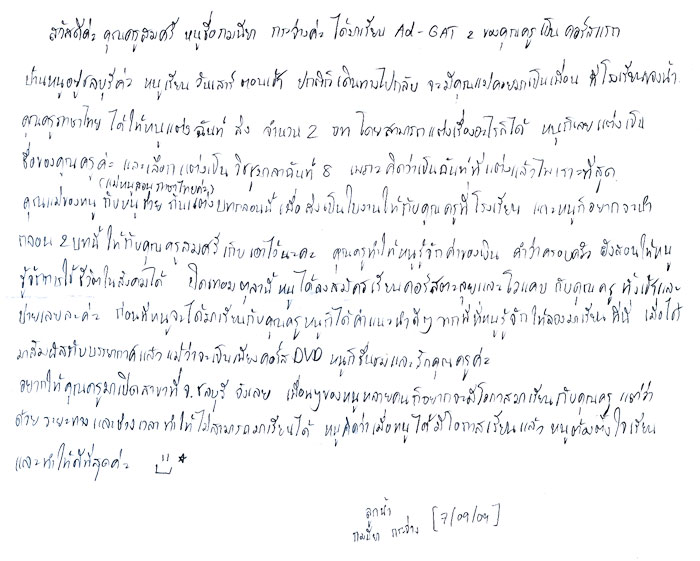 สวัสดีค่ะ คุณครูสมศรี หนูชื่อกมนียา กระจ่างค่ะ ได้มาเรียน Ad-GAT 2 ของคุณครูเป็นคอร์สแรก
บ้านหนูอยู่ชลบุรีค่ะ หนูเรียนวันเสาร์ ตอนเช้า ปกติก็เดินทางไปกลับ จะมีคุณแม่คอยมาเป็นเพื่อน ที่โรงเรียนของน้า
คุณครูภาษาไทย ได้ให้หนูแต่งฉันท์ ส่ง จำนวน 2 บท โดยสามารถแต่งเรื่องอะไรก็ได้ หนูก็เลยแต่งเป็น
ชื่อของคุณครูค่ะ และเลือกแต่งเป็น วิชชุมมาลาฉันท์ 8 เพราะคิดว่าเป็นฉันท์ที่แต่งแล้วไพเราะที่สุด
(แม่หนูสอนภาษาไทยค่ะ)
คุณแม่ของหนู กับหนูช่วยกันแต่งบทกลอนนี้ เพื่อส่งเป็นใบงานให้กับคุณครูที่โรงเรียน และหนูก็อยากจะนำ
กลอน 2 บทนี้ ให้กับคุณครูสมศรีเก็บเอาไว้นะคะ คุณครูทำให้หนูรู้จักค่าของเงิน คำว่าครอบครัว ยังสอนให้หนู
รู้จักการใช้ชีวิตในสังคมได้ ปิดเทอมตุลานี้หนูได้ลงสมัครเรียนคอร์สตะลุยและโวแคบ กับคุณครู ทั้งเช้าและ
บ่ายเลยล่ะค่ะ ก่อนที่หนูจะได้มาเรียนกับคุณครูหนูก็ได้คำแนะนำดีๆ จากพี่ที่หนูรู้จัก ให้ลองมาเรียนที่นี่ เมื่อได้
มาสัมผัสกับบรรยากาศแล้ว แม้ว่าจะเป็นเพียงคอร์ส DVD หนูก็ชื่นชมและรักคุณครูค่ะ
อยากให้คุณครูมาเปิดสาขาที่ จ.ชลบุรี จังเลย เพื่อนๆของหนูหลายคนก็อยากจะมีโอกาสมาเรียนกับคุณครู แต่ว่า
ด้วยระยะทางและช่วงเวลาทำให้ไม่สามารถมาเรียนได้ หนูคิดว่าเมื่อหนูได้มีโอกาสเรียนแล้ว หนูต้องตั้งใจเรียน
และทำให้ดีที่สุดค่ะ
ลูกน้ำ
กมนียา กระจ่าง [7/09/09]